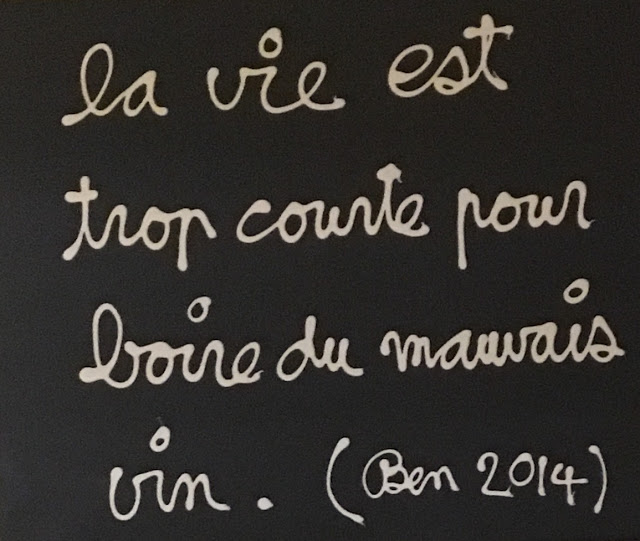 la vie est
trop courte pour
boire du mauvais
vin. (Ben 2014)